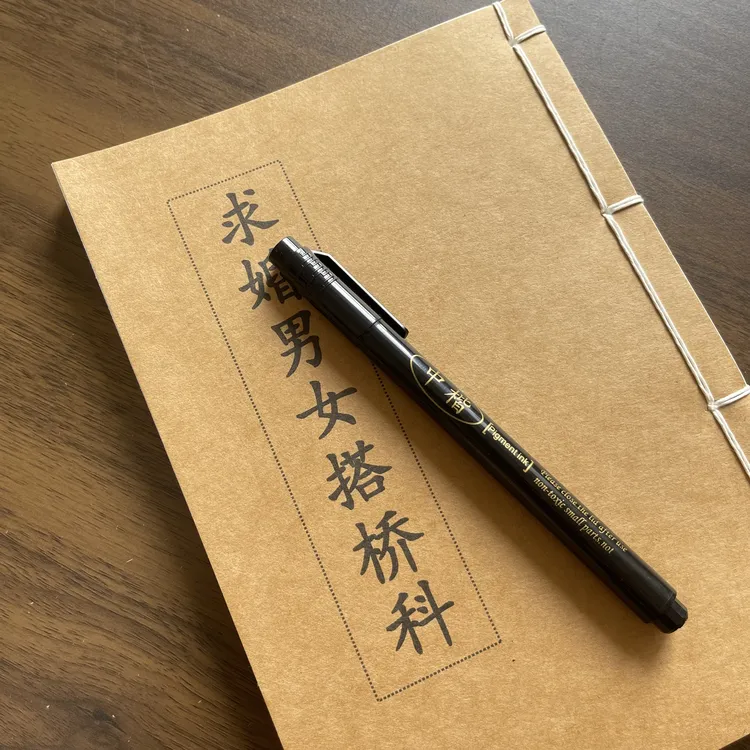 求婚男女搭桥科
中楷
[Pigment ink]
Please close the lid after use
non-toxic small parts not